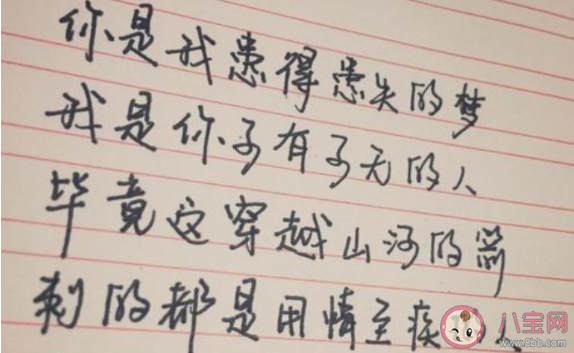 你是我患得患失的梦
我是你可有可无的人
毕竟这穿越山河的箭
刺的都是用情至疾 人
八宝网
www.8bb.com